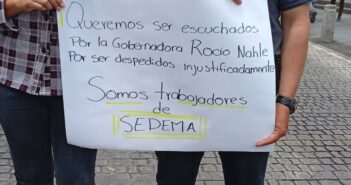 Queremos ser escuchados
Por la Gobernadora Rocio Nahle
Por ser despedidos injustificadamente
Somos trabajadores
de
SEDEMA